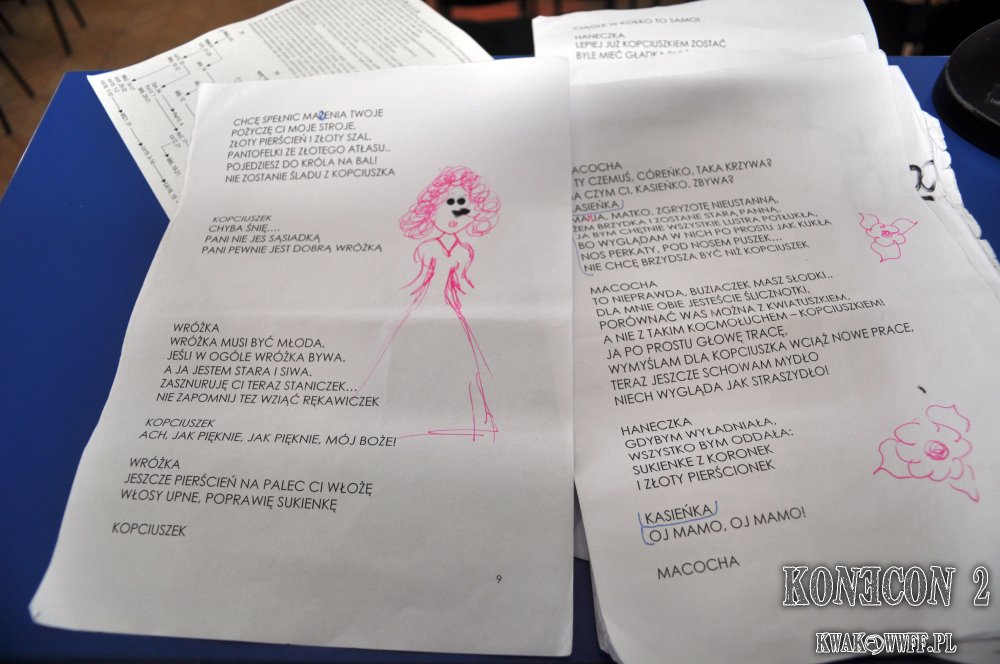 CHCĘ SPEŁNIC MAŻENIA TWOJE
POŻYCZĘ CI MOJE STROJE,
ZŁOTY PIERŚCIEŃ I ZŁOTY SZAL,
PANTOFELKI ZE ZŁOTEGO ATŁASU..
POJEDZIESZ DO KRÓLA NA BAL!
NIE ZOSTANIE ŚLADU Z KOPCIUSZKA
KOPCIUSZEK
CHYBA ŚNIĘ....
PANI NIE JES SĄSIADKĄ
PANI PEWNIE JEST DOBRĄ WRÓŻKĄ
WRÓŻKA
WRÓŻKA MUSI BYĆ MŁODA,
JEŚLI W OGÓLE WRÓŻKA BYWA,
A JA JESTEM STARA I SIWA.
ZASZNURUJĘ CI TERAZ STANICZEK...
NIE ZAPOMNIJ TEZ WZIĄĆ RĘKAWICZEK
KOPCIUSZEK
ACH, JAK PIĘKNIE, JAK PIĘKNIE, MÓJ BOŻE!
WRÓŻKA
JESZCZE PIERŚCIEŃ NA PALEC CI WŁOŻĘ
WŁOSY UPNE, POPRAWIĘ SUKIENKĘ
KOPCIUSZEK
9
CIĄGLE W KÓŁKO TO SAMO!
HANECZKA
LEPIEJ JUŻ KOPCIUSZKIEM ZOSTAĆ
BYLE MIEĆ GŁADKĄ
MACOCHA
TY CZEMUŚ, CÓREŃKO, TAKA KRZYWA?
NA CZYM CI, KASIEŃKO, ZBYWA?
KASIEŃKA
MATKO, ZGRYZOTĘ NIEUSTANNĄ,
ŻEM BRZYDKA I ZOSTANĘ STARĄ PANNĄ,
JA BYM CHĘTNIE WSZYSTKIE LUSTRA POTŁUKŁA,
BO WYGLĄDAM W NICH PO PROSTU JAK KUKŁA
NOS PERKATY, POD NOSEM PUSZEK....
NIE CHCĘ BRZYDSZA BYĆ NIŻ KOPCIUSZEK
MACOCHA
TO NIEPRAWDA, BUZIACZEK MASZ SŁODKI..
DLA MNIE OBIE JESTEŚCIE ŚLICZNOTKI,
PORÓWNAĆ WAS MOŻNA Z KWIATUSZKIEM,
A NIE Z TAKIM KOCMOŁUCHEM – KOPCIUSZKIEM!
JA PO PROSTU GŁOWĘ TRACĘ,
WYMYŚLAM DLA KOPCIUSZKA WCIĄŻ NOWE PRACE,
TERAZ JESZCZE SCHOWAM MYDŁO
NIECH WYGLĄDA JAK STRASZYDŁO!
HANECZKA
GDYBYM WYŁADNIAŁA,
WSZYSTKO BYM ODDAŁA:
SUKIENKE Z KORONEK
I ZŁOTY PIERŚCIONEK
KASIEŃKA
OJ MAMO, OJ MAMO!
MACOCHA
KONECON 2
KWAKOWWFF.PL